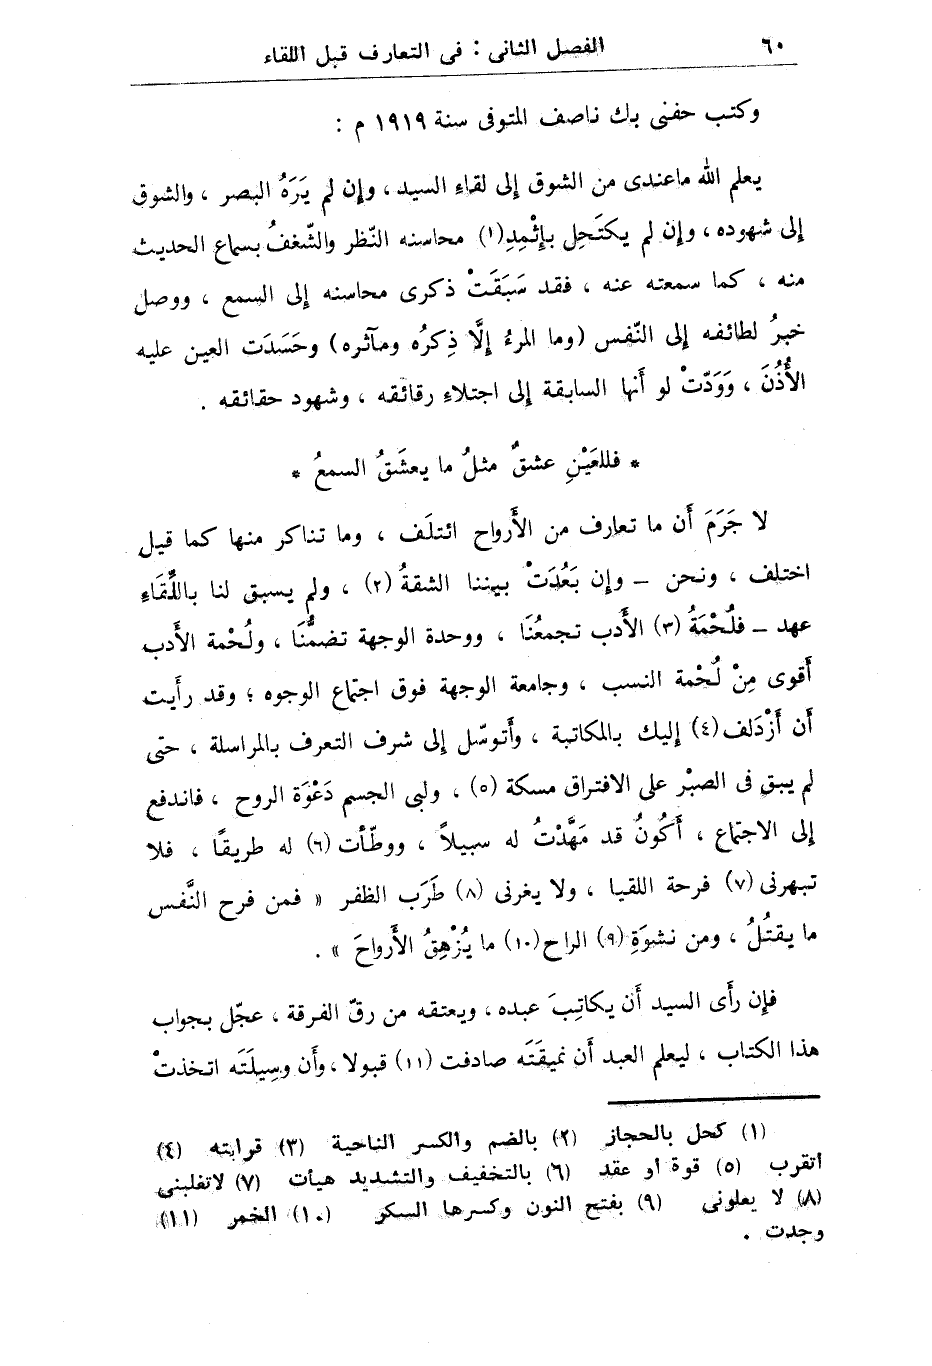 ٦٠ الفصل الثانى : فى التعارف قبل اللقاء
وكتب حفنى بك ناصف المتوفى سنة ١٩١٩ م :
يعلم الله ماعندى من الشوق إلى لقاء السيد ، وإن لم يَرَهُ البصر ، والشوق
إلى شهوده ، وإن لم يكتَحِل بإثْمِدِ(١) محاسنه النّظر والشّغفُ بسماع الحديث
منه ، كما سمعته عنه ، فقد سَبَقَتْ ذكرى محاسنه إلى السمع ، ووصل
خبرُ لطائفه إلى النّفس (وما المرءُ إلَّا ذِكرُه ومآثره) وحَسَدَت العين عليه
الأُذُنَ ، وَوَدّتْ لو أَنها السابقة إلى اجتلاء رقائقه ، وشهود حقائقه .
* فللعَيْنِ عشقٌ مثلُ ما يعشَقُ السمعُ *
لا جَرَمَ أَن ما تعارف من الأَرواح ائتلَف ، وما تناكر منها كما قيل
اختلف ، ونحن – وإن بَعُدَتْ بيننا الشقةُ (٢) ، ولم يسبق لنا باللِّقَاءِ
عهد – فلُحْمَةُ (٣) الأَدب تجمعُنَا ، ووحدة الوجهة تضمُّنَا ، ولُحْمة الأَدب
أَقوى مِنْ لُحْمة النسب ، وجامعة الوجهة فوق اجتماع الوجوه ؛ وقد رأَيت
أَن أَزْدَلف(٤) إليك بالمكاتبة ، وأَتوسّل إلى شرف التعرف بالمراسلة ، حتى
لم يبق فى الصبْر على الافتراق مسكة (٥) ، ولبى الجسم دَعْوَة الروح ، فاندفع
إلى الاجتماع ، أَكُونُ قد مَهَّدْتُ له سبيلاً ، ووطّأت (٦) له طريقًا ، فلا
تبهرنى (٧) فرحة اللقيا ، ولا يغرنى (٨) طَرَب الظفر « فمن فرح النَّفس
ما يقتُلُ ، ومن نشوَةِ (٩) الراح(١٠) ما يُزْهِقُ الأَرواحَ » .
فإن رأَى السيد أَن يكاتِبَ عبده ، ويعتقه من رقّ الفرقة ، عجّل بجواب
هذا الكتاب ، ليعلم العبد أَن نميقَتَه صادفت (١١) قبولا ، وأَن وسِيلَتَه اتخذتْ
(١) كحل بالحجاز (٢) بالضم والكسر الناحية (٣) قرابته (٤)
أتقرب (٥) قوة أو عقد (٦) بالتخفيف والتشديد هيأت (٧) لاتغلبنى
(٨) لا يعلونى (٩) بفتح النون وكسرها السكر (١٠) الخمر (١١)
وجدت .